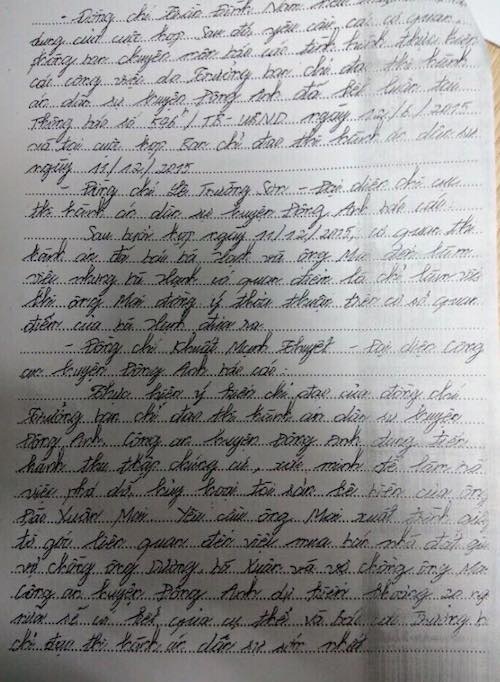 - Đồng chí Trần Đình Nam
dung của cuộc họp. Sau đó, yêu cầu các cơ quan,
phòng ban chuyên môn báo cáo tình hình thực hiện
các công việc do Trưởng ban chỉ đạo thi hành
án dân sự huyện Đông Anh đã kết luận tại
Thông báo số 596/TB-UBND ngày 12/6/2015
và tại cuộc họp Ban chỉ đạo thi hành án dân sự
ngày 11/12/2015
- Đồng chí Lê Trường Sơn - Đại diện chi cục
thi hành án dân sự huyện Đông Anh báo cáo:
Sau buổi họp ngày 11/12/2015, cơ quan thi
hành án đã báo bà Hạnh và ông Mai đến làm
việc nhưng bà Hạnh có quan điểm là chỉ làm việc
khi ông Mai đồng ý thỏa thuận trên cơ sở quan
điểm của bà Hạnh đưa ra.
- Đồng chí Khuất Mạnh Thuyết - Đại diện Công
an huyện Đông Anh báo cáo:
Thực hiện ý kiến chỉ đạo của đồng chí
Trưởng ban chỉ đạo thi hành án dân sự huyện
Đông Anh. Công an huyện Đông Anh đang tiến
hành thu thập chứng cứ, xác minh để làm rõ
việc phá dỡ, hủy hoại tài sản kê biên của ông
Đào Xuân Mai. Yêu cầu ông Mai xuất trình giấy
tờ gửi liên quan đến việc mua bán nhà đất giữa
vợ chồng ông Dương, bà Xuân và vợ chồng ông Mai
Công an huyện Đông Anh dự kiến khoảng 20 ngày
nữa sẽ có kết quả cụ thể và báo cáo Trưởng ban
chỉ đạo thi hành án dân sự sớm nhất